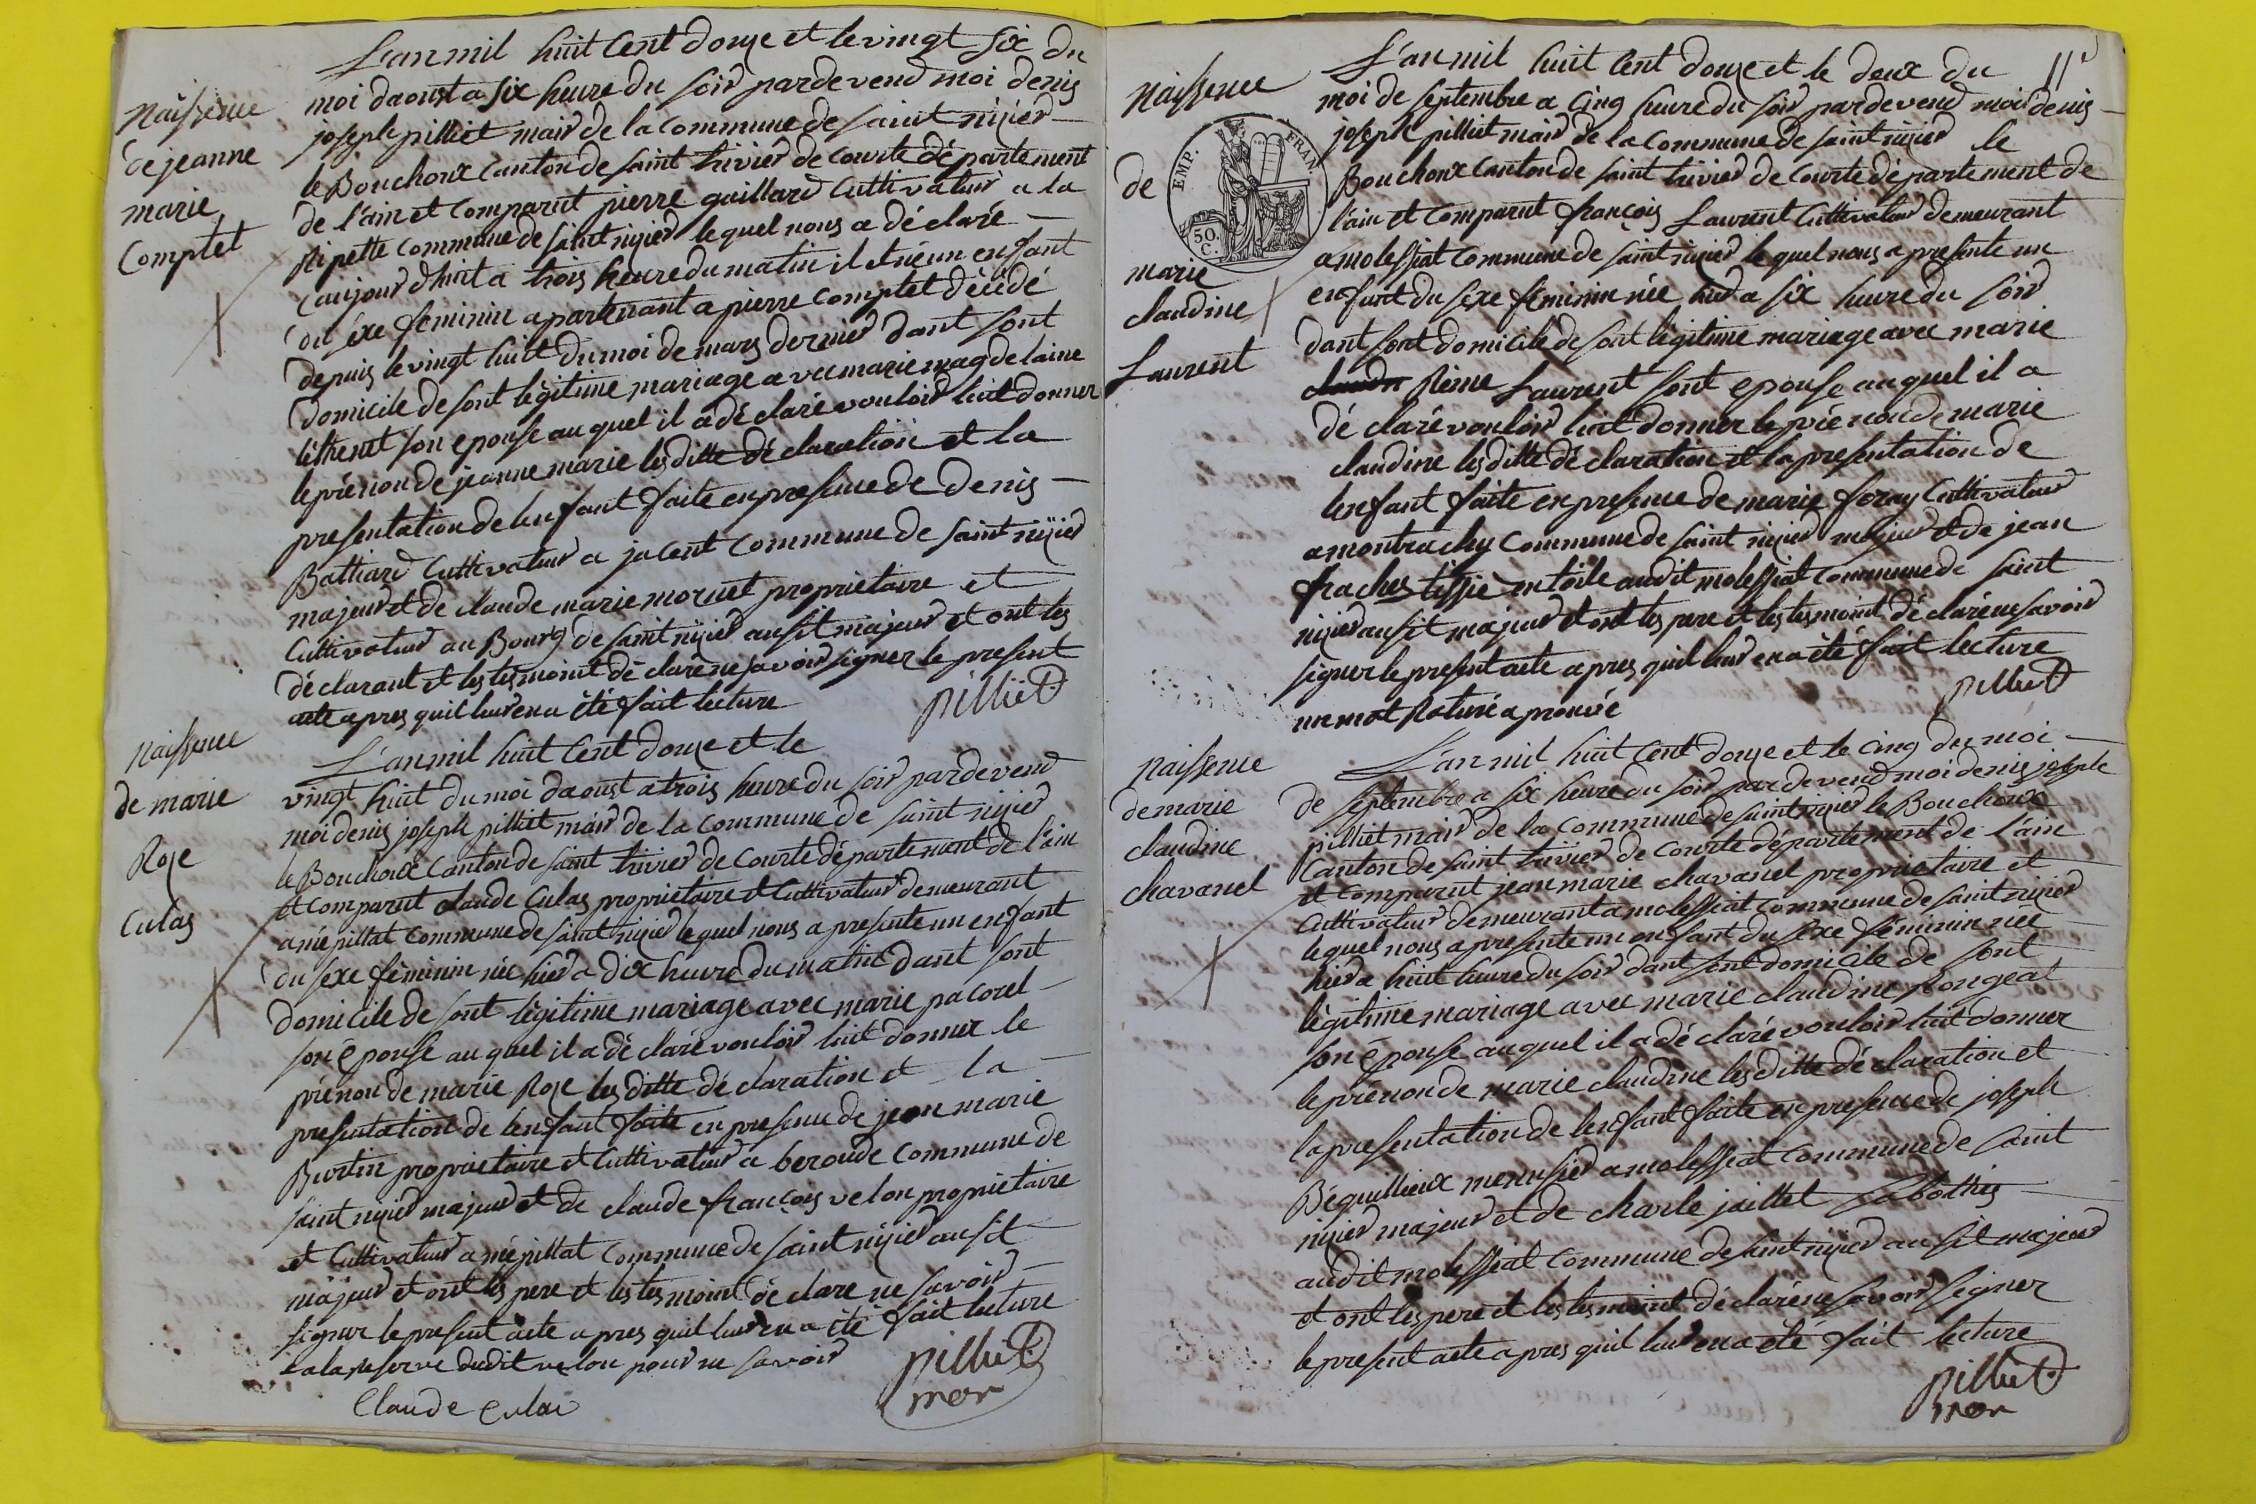 naissence
de jeanne
marie
Complet
L'an mil huit Cent douze et le vingt six du
moi daoust a six heure du soir par devend moi denis
joseph pilliet mair de la Commune de saint nizier
le Bouchoux Canton de saint trivier de Courte département
de l'ain et Comparut pierre gaillard Cultivateur a la
Ripette Commune de saint nizier le quel nous a déclaré
aujour dhuit a trois heure du matin il et née un enfant
du séxe feminin apartenant a pierre Complet décédé
depuis le vingt huit du moi de mars dernier dant sont
domicile de sont légitime mariage avec marie magdelaine
son épouse au quel il a dé claré vouloir luit donner
le prénon de jeanne marie les ditte dé claration et la
presentation de lenfant faite en presence de denis
Batliard Cultivateur a jacent Commune de saint nizier
majeur et de claude marie moruet proprietaire et
Cultivateur au Bourg de saint nizier ausit majeur et ont les
déclarant et les tesmoint dé claré ne savoir signer le present
acte apres quil leur en a été fait lecture
pilliet
naissence
de marie
Roze
Culas
L'an mil huit Cent douze et le
vingt huit du moi daoust a trois heure du soir par devend
moi denis joseph pilliet mair de la Commune de saint nizier
le Bouchoux Canton de saint trivier de Courte département de l'ain
et Comparut claude Culas proprietaire et Cultivateur demeurant
a mépillat Commune de saint nizier le quel nous a presente un enfant
du sexe féminin née hier a dix heure du matin dant sont
domicile de sont légitime mariage avec marie pacorel
son épouse au quel il a dé claré vouloir luit donner le
prénon de marie Roze les ditte dé claration et la
presentation de lenfant faite en presence de jean marie
Burtin proprietaire et Cultivateur a beroude Commune de
saint nizier majeur et de claude françois velon proprietaire
et Cultivateur a mépillat Commune de saint nizier ausit
majeur et ont les pere et les tesmoint dé clare ne savoir
signer le present acte apres quil leur en a été fait lecture
a la reserve dudit velon pour ne savoir
pilliet
mer
Claude Culas
11
naissence
de
EMP. FRAN.
50. C.
marie
claudine
Laurent
L'an mil huit Cent douze et le deux du
moi de septembre a Cinq heure du soir par devend moi denis
joseph pilliet mair de la Commune de saint nizier le
Bouchoux Canton de saint trivier de Courte département de
l'ain et Comparut françois Laurent Cultivateur demeurant
a molessiat Commune de saint nizier le quel nous a presente un
enfant du sexe féminin née hier a six heure du soir
dant sont domicile de sont légitime mariage avec marie
Rème Laurent sont epouse au quel il a
dé claré vouloir luit donner le prénon de marie
claudine les ditte dé claration et la presentation de
lenfant faite en presence de marie foray Cultivateur
a montrachy Commune de saint nizier majeur et de jean
frachet tissie en toile audit molessiat Commune de saint
nizier ausit majeur et ont les pere et les tesmoint dé claré ne savoir
signer le present acte apres quil leur en a été fait lecture
un mot Raturé aprouvé
pilliet
naissence
de marie
claudine
chavanel
L'an mil huit Cent douze et le Cinq du moi
de septembre a six heure du soir par devend moi denis joseph
pilliet mair de la Commune de saint nizier le Bouchoux
Canton de saint trivier de Courte département de l'ain
et Comparut jean marie chavanel proprietaire et
Cultivateur demeurant a molessiat Commune de saint nizier
lequel nous a presente un enfant du sexe féminin née
hier a huit heure du soir dant sont domicile de sont
légitime mariage avec marie claudine Rongeat
son épouse au quel il a dé claré vouloir luit donner
le prénon de marie claudine les ditte dé claration et
la presentation de lenfant faite en presence de joseph
Béquillieux menusier a molessiat Commune de saint
nizier majeur et de charle jaillet sabottier
audit molessiat Commune de saint nizier ausit majeur
et ont les pere et les tesmoint dé claré ne savoir signer
le present acte apres quil leur en a été fait lecture
pilliet
mer